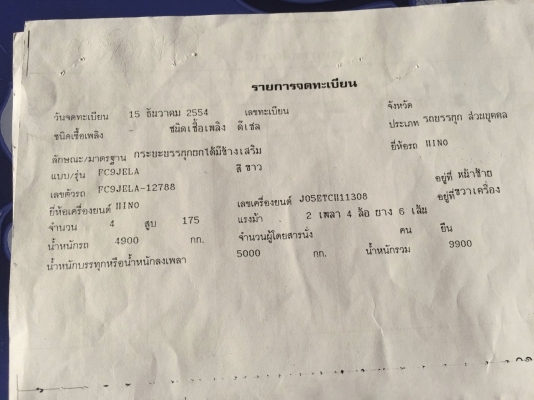 รายการจดทะเบียน
วันจดทะเบียน 15 ธันวาคม 2554 เลขทะเบียน จังหวัด
ชนิดเชื้อเพลิง - ชนิดเชื้อเพลิง ดีเซล ประเภท รถบรรทุก ส่วนบุคคล
ลักษณะ/มาตรฐาน กระบะบรรทุกยกได้มีข้างเสริม ยี่ห้อรถ HINO
แบบ/รุ่น FC9JELA สี ขาว
เลขตัวรถ FC9JELA-12788 อยู่ที่ หน้าซ้าย
ยี่ห้อเครื่องยนต์ HINO เลขเครื่องยนต์ J05ETCH11308 อยู่ที่ขวาเครื่อง
จำนวน 4 สูบ 175 แรงม้า 2 เพลา 4 ล้อ ยาง 6 เส้น
น้ำหนักรถ 4900 กก. จำนวนผู้โดยสารนั่ง คน ยืน
น้ำหนักบรรทุกหรือน้ำหนักลงเพลา 5000 กก. น้ำหนักรวม 9900